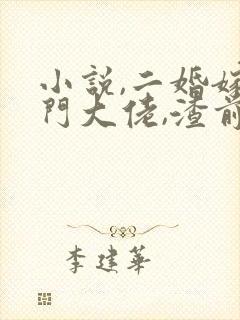 小説,二婚嫁
門大佬,渣前
李建華